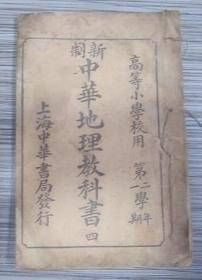 高等小學校用 第二一學年期
新制
中華地理教科書 四
上海中華書局發行